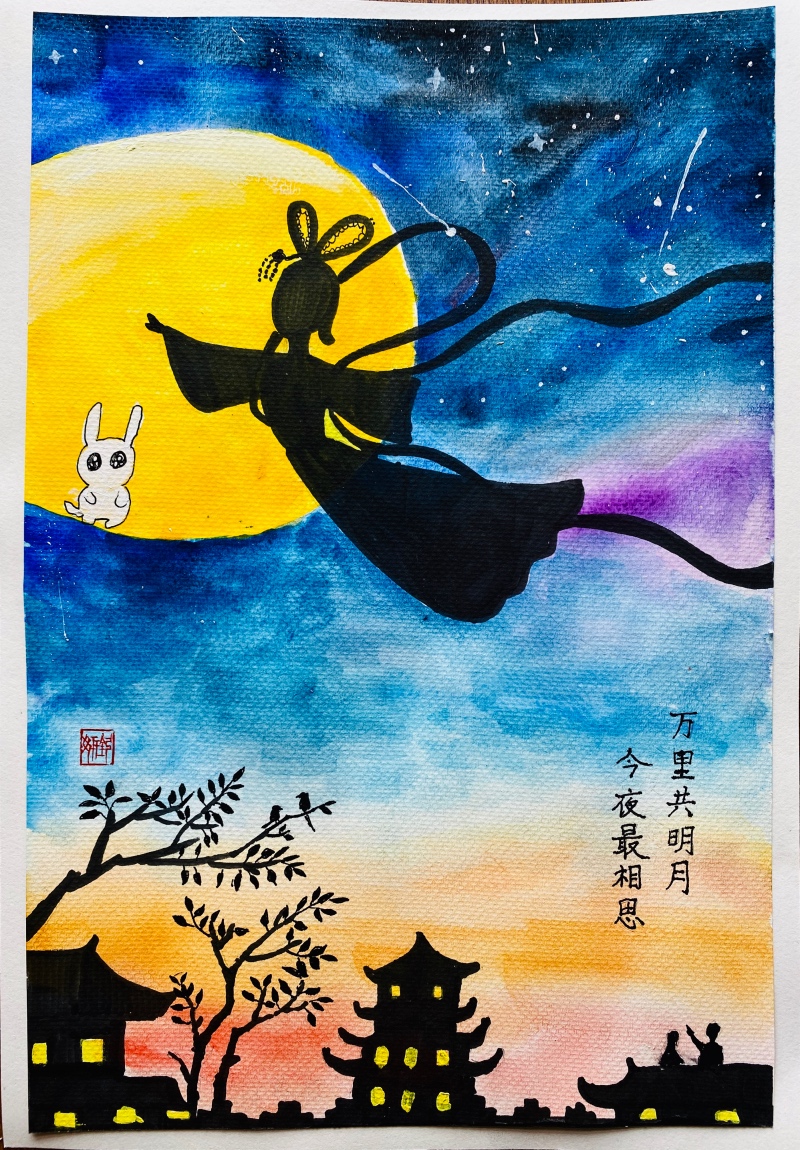 万里共明月
今夜最相思